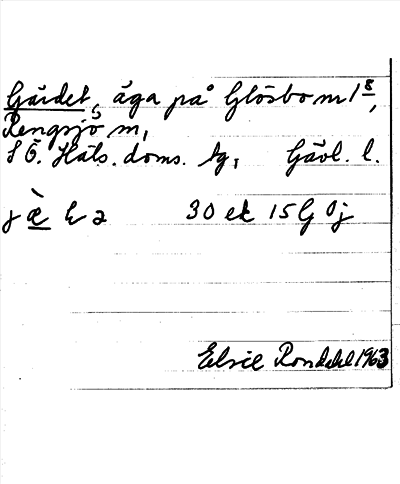 Gärdet, äga på Glösbo m 1⁸,
Rengsjö sn,
S Ö. Häls. doms. tg, Gävl. l.
30 ek 15G 0j
Elsie Rondahl 1963